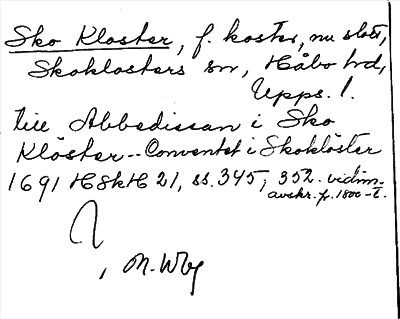 Sko Kloster, f. kloster, nu slott,
Skoklosters sn, Håbo hd,
Upps. l.
till Abbedissan i Sko
Klöster -- Conventet i Skoklöster
1691 HSkH 21, ss. 345, 352. vidim.
avskr. fr. 1800-t.
, M. Wbg